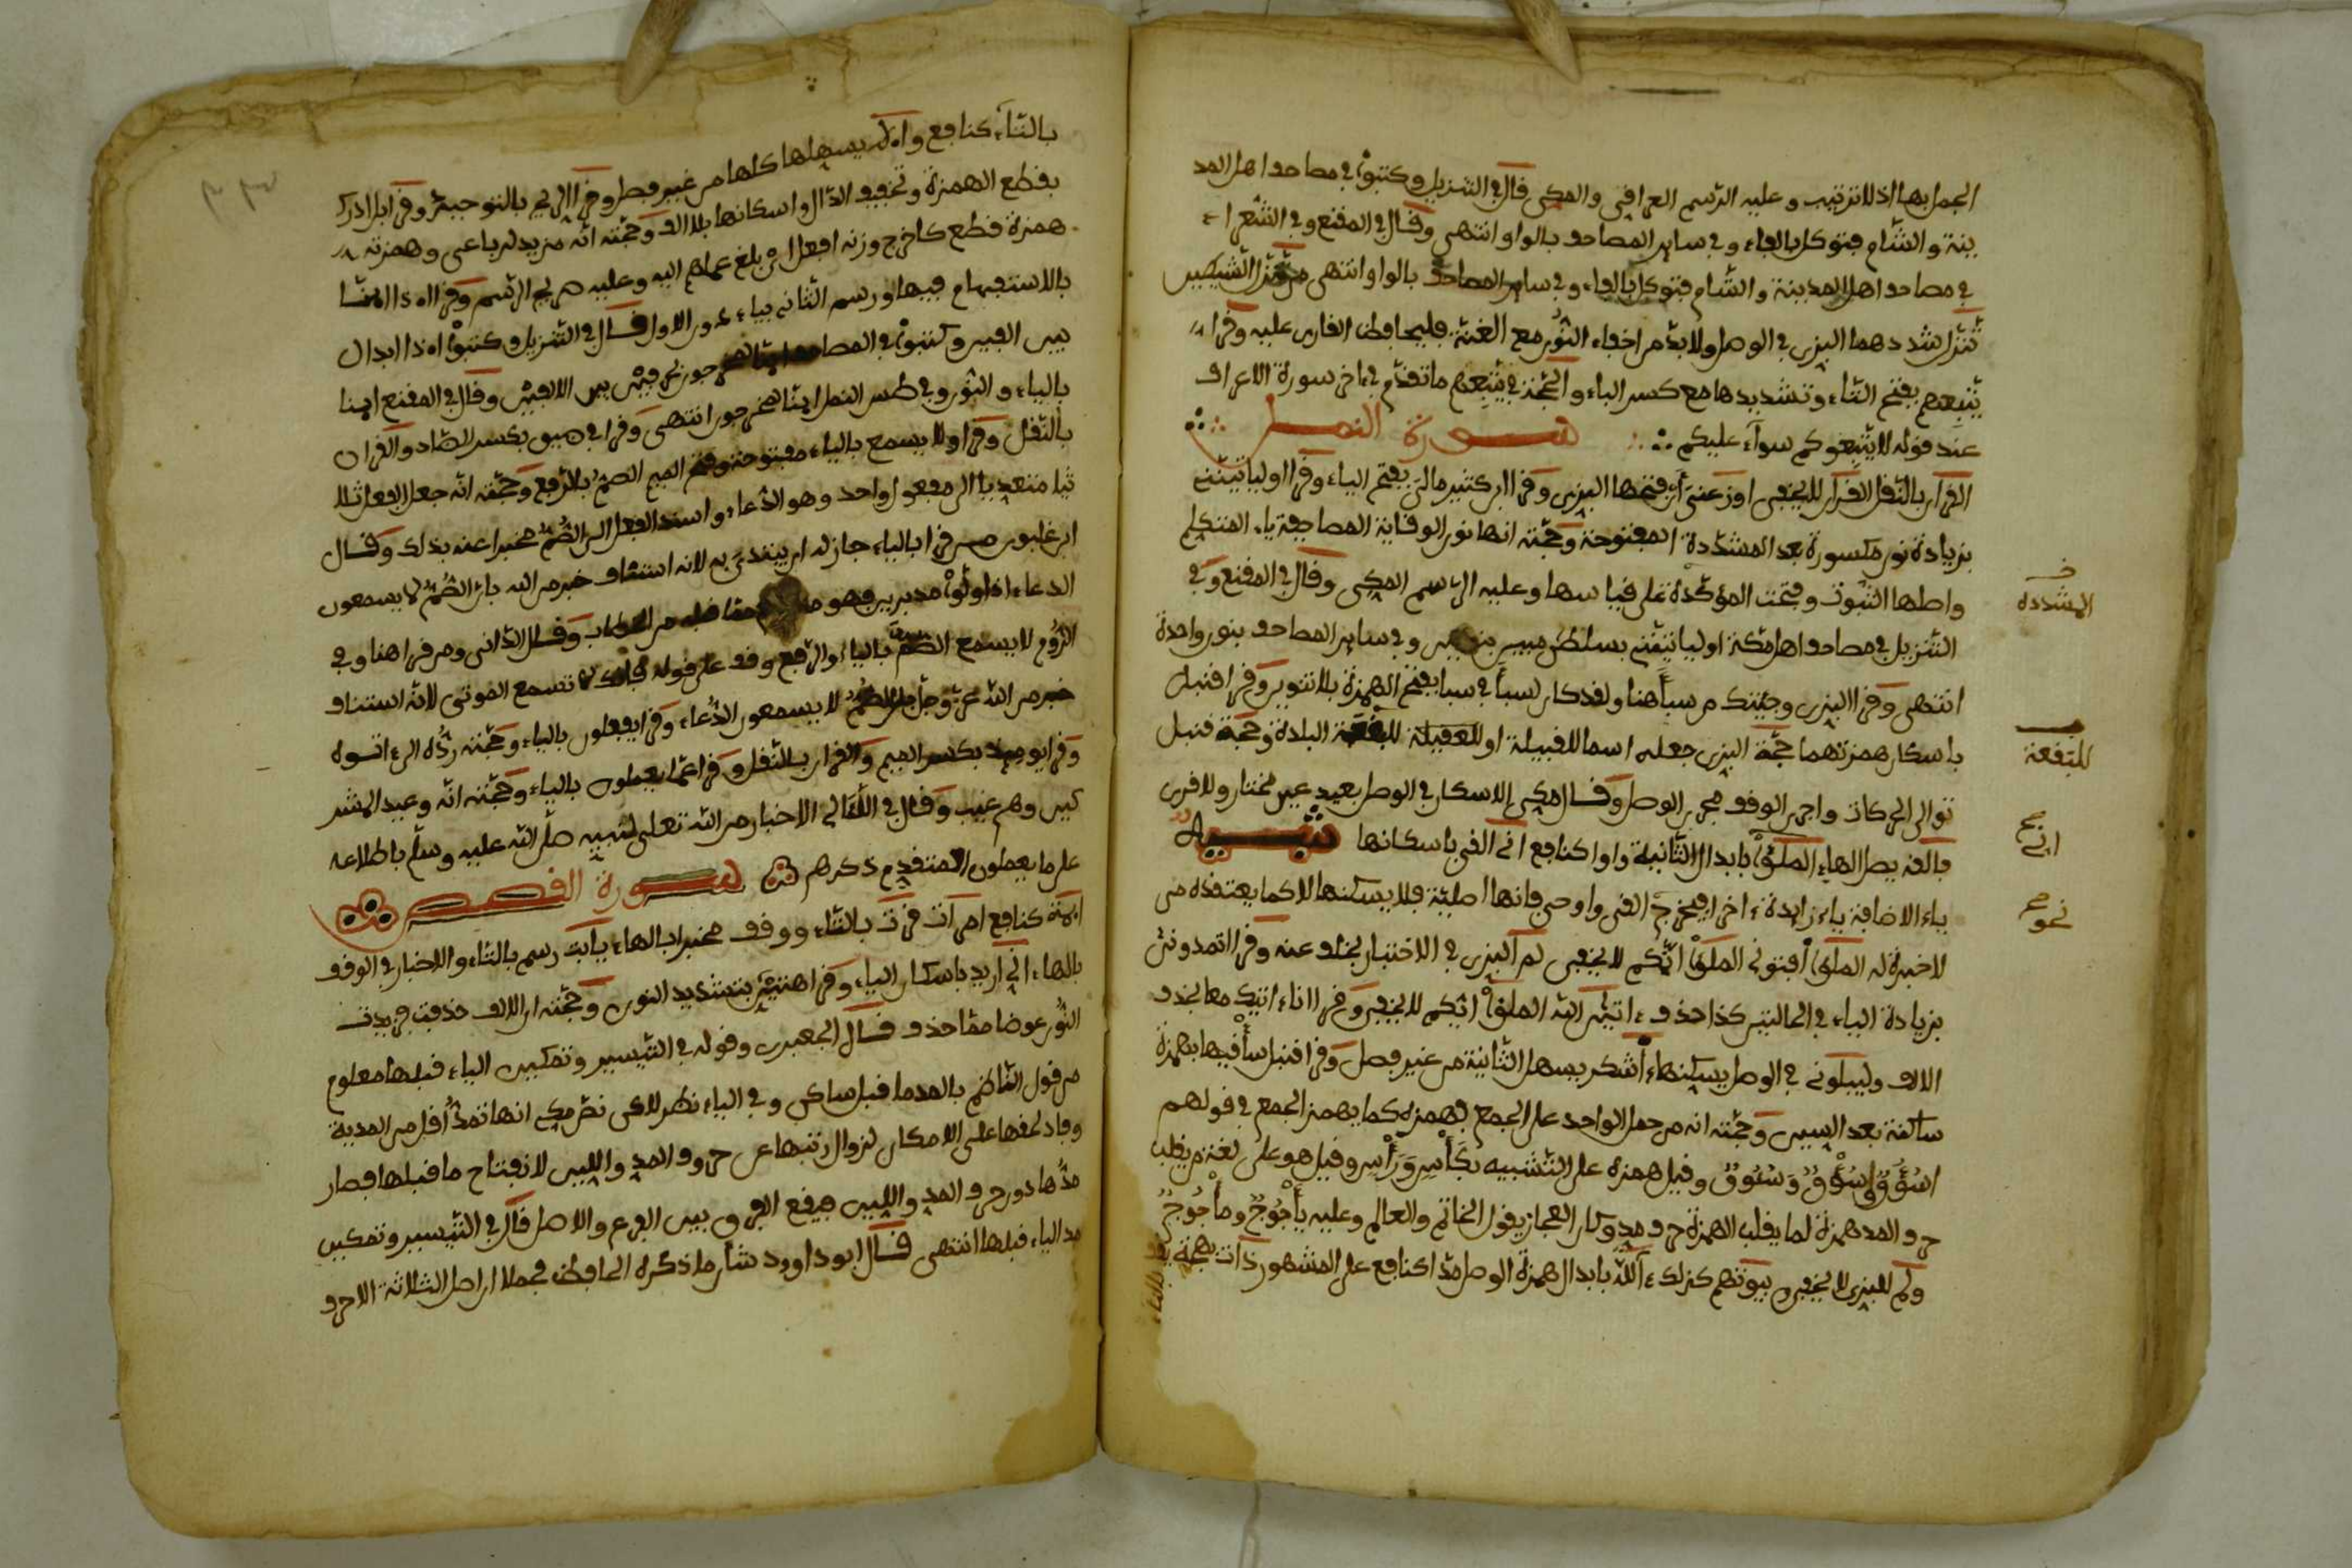 الجمل بها اذ لا ترتيب وعليه الرسم العراقي والمكي قال في التنزيل وكتبوا في مصاحف اهل المد
ينة والشام فتوكل بالفاء وفي ساير المصاحف بالواو انتهى وقال في المقنع وفي الشعراء
في مصاحف اهل المدينة والشام فتوكل بالفاء وفي ساير المصاحف بالواو انتهى من تنزل الشيطين
تنزل شددهما البزي في الوصل ولا بد من اخفاء النون مع الغنة فليحافظ القارئ عليه وقرا
يتبعهم بفتح التاء وتشديدها مع كسر الباء والحجة في يتبعهم ما تقدم في ءاخر سورة الاعراف
عند قوله لا يتبعوكم سواء عليكم سورة النمل
القرءان بالنقل القرءان لا يخفى اوزعني ان فتحها البزي وقرا ابن كثير مالي بفتح الياء وقرا اوليأتينني
بزيادة نون مكسورة بعد المشددة المفتوحة وحجته انها نون الوقاية المصاحبة ياء المتكلم
واصلها الثبوت وفتحت المؤكدة على قياسها وعليه الرسم المكي وقال في المقنع وفي
التنزيل في مصاحف اهل مكة اوليأتينني بسلطن مبين بنونين وفي ساير المصاحف بنون واحدة
انتهى وقرا البزي وجئتك من سبأ هنا ولقد كان لسبأ في سبا بفتح الهمزة بلا تنوين وقرا قنبل
باسكان همزتهما حجة البزي جعله اسما للقبيلة او للبقعة البلدة وحجة قنبل
توالي الحركات واجرى الوقف مجرى الوصل وقال مكي الاسكان في الوصل بعيد غير مختار ولا قوي
فألقه يصل الهاء الملؤا بابدال الثانية واوا كنافع اني القي باسكانها تنبيه
ياء الاضافة ياء زايدة ءاخرا فيخرج القي واوحي فانها اصلية فلا يسكنها لا كما يعتقده من
لا خبرة له الملؤا افتوني الملؤا ايكم لا يخفى لم البزي في الاختبار بخلف عنه وقرا اتمدونني
بزيادة الياء في الحالتين كذا حذف ءاتين الله الملؤا ايكم لا يخفى وقرا انا ءاتيك معا بحذف
الالف وليبلوني في الوصل يسكنها ءأشكر يسهل الثانية من غير فصل وقرا قنبل سأقيها بهمزة
ساكنة بعد السين وحجته انه من حمل الواحد على الجمع بهمزه كما يهمز الجمع في قولهم
اسؤق وسؤق وسئوق وقيل همزه على التشبيه بكأس ورأس وقيل هو على لغة من يقلب
حرف المد همزة لما يقلب الهمزة حرف مد وكان العجاز يقول الخأتم والعألم وعليه يأجوج ومأجوج
ولم للبزي لا يخفى بيوتهم كذلك ءالله بابدال همزة الوصل مدا كنافع على المشهور ذات بهجة يقف
بالهاء
المشددة
للبقعة
اني
نحو
بالتاء كنافع وأءله يسهلها كلها من غير فصل وقرا الريح بالتوحيد وقرا بل ادرك
بقطع الهمزة وتخفيف الدال واسكانها بلا الف وحجته انه مزيد لرباعي وهمزته
همزة قطع كاخرج وزنه افعل اي بلغ علمهم اليه وعليه صريح الرسم وقرا اءذا اءنا
بالاستفهام فيها ورسم الثاني بياء دون الاول قال في التنزيل وكتبوا اءذا ابدال
بين الفين وكتبوا في المصاحف اينا لمخرجون بحرفين بين الالفين وقال في المقنع اينا
بالياء والنون وفي طس النمل اينا لمخرجون انتهى وقرا في ضيق بكسر الضاد والقران
بالنقل وقرا ولا يسمع بالياء مفتوحة وفتح الميم الصم بالرفع وحجته انه جعل الفعل ثلا
ثيا متعديا الى مفعول واحد وهو الدعاء واسند الفعل الى الصم مخبرا عنه بذلك وقال
ابن غلبون من قرا بالياء جاز له ان يبتدئ به لانه استيناف خبر من الله بان الصم لا يسمعون
الدعاء اذا ولوا مدبرين فهو مما قبله من الخطاب وقال الداني ومن قرا هنا وفي
الروم لا يسمع الصم بالياء والرفع وقف على قوله فانك لا تسمع الموتى لانه استيناف
خبر من الله عز وجل ان الصم لا يسمعون الدعاء وقرا يفعلون بالياء وحجته رده الى اتوه
وقرا يومئذ بكسر الميم والقران بالنقل وقرا عما يعملون بالياء وحجته انه وعيد المشر
كين وهم غيب وقال في اللآلي الاخبار من الله تعلى لنبيه صلى الله عليه وسلم باطلاعه
على ما يعملون المتقدم ذكرهم سورة القصص
ايمة كنافع امرأت قرت بالتاء ووقف مخبرا بالهاء يأبت رسم بالتاء والاختبار في الوقف
بالهاء اني اريد باسكان الياء وقرا هتين بتشديد النون وحجته ان الالف حذفت فزيدت
النون عوضا مما حذف قال الجعبري وقوله في التيسير وتمكين الياء قبلها معلوم
من قول الناظم بالمد ما قبل ساكن وفي الياء نظر لان نص مكي انها تمد اقل من المدية
وفاد لحقها على الامكان لزوال رتبتها عن حروف المد واللين لانفتاح ما قبلها فصار
مدها دون حروف المد واللين فيقع الفرق بين الفرع والاصل قال في التيسير وتمكين
مد الياء قبلها انتهى قال ابو داوود شأن ما ذكره الحافظ مجملا ان اصل الثلاثة الاحرف